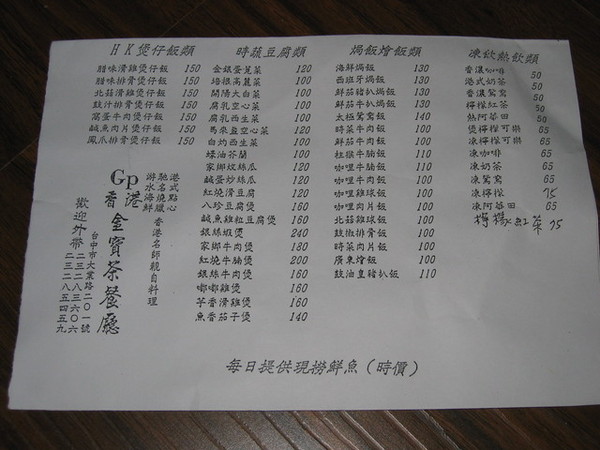 HK煲仔飯類
腊味滑雞煲仔飯 150
腊味排骨煲仔飯 150
北菇滑雞煲仔飯 150
豉汁排骨煲仔飯 150
窩蛋牛肉煲仔飯 150
鹹魚肉片煲仔飯 150
鳳爪排骨煲仔飯 150
時蔬豆腐類
金銀蛋莧菜 120
培根高麗菜 100
開陽大白菜 100
腐乳空心菜 100
腐乳西生菜 100
馬來盞空心菜 120
白灼西生菜 100
蠔油芥蘭 100
家鄉炆絲瓜 120
鹹蛋炒絲瓜 120
紅燒滑豆腐 120
八珍豆腐煲 160
鹹魚雞粒豆腐煲 160
銀絲蝦煲 240
家鄉牛肉煲 180
紅燒牛腩煲 200
銀絲牛肉煲 160
嘟嘟雞煲 160
芋香滑雞煲 160
魚香茄子煲 140
焗飯燴飯類
海鮮焗飯 130
西班牙焗飯 130
鮮茄豬扒焗飯 130
鮮茄牛扒焗飯 130
太極鴛鴦飯 140
時菜牛肉飯 100
鮮茄牛肉飯 100
柱猴牛腩飯 110
咖哩牛腩飯 110
咖哩牛肉飯 100
咖哩雞球飯 100
咖哩肉片飯 100
北菇雞球飯 100
豉椒排骨飯 100
時菜肉片飯 100
廣東燴飯 100
豉油皇豬扒飯 110
凍飲熱飲類
香濃咖啡 50
港式奶茶 50
香濃鴛鴦 50
檸檬紅茶 50
熱阿華田 50
煲檸檬可樂 65
凍檸檬可樂 65
凍咖啡 65
凍奶茶 65
凍鴛鴦 65
凍檸檬 75
凍阿華田 65
檸檬紅茶 75
港式點心
馳名燒臘
游水海鮮
香港名師親自料理
Gp港
香金寶茶餐廳
台中市大業路二〇一號
二三二八三六〇六
二三二八五四五九
歡迎外帶
每日提供現撈鮮魚(時價)